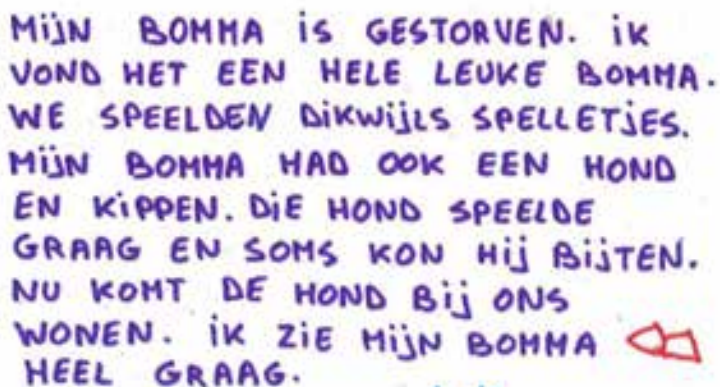 MijN BOMMA iS GESTORVEN. iK
VOND HET EEN HELE LEUKE BOMMA.
WE SPEELDEN DiKWijLS SPELLETjES.
MijN BOMMA HAD OOK EEN HOND
EN KiPPEN. DiE HOND SPEELDE
GRAAG EN SOMS KON Hij BijTEN.
NU KOMT DE HOND Bij ONS
WONEN. iK ZiE MijN BOMMA
HEEL GRAAG.